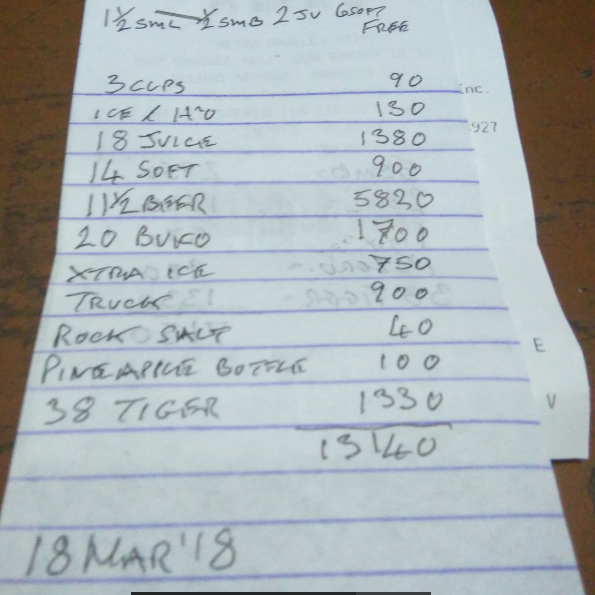 1½ SML 1½ SMB 2 JU 6 SOFT
FREE
3 CUPS 90
ICE / H2O 130
18 JUICE 1380
14 SOFT 900
11½ BEER 5820
20 BUKO 1700
XTRA ICE 750
TRUCK 900
ROCK SALT 40
PINEAPPLE BOTTLE 100
38 TIGER 1330
13140
18 MAR '18
Inc.
927
E
V